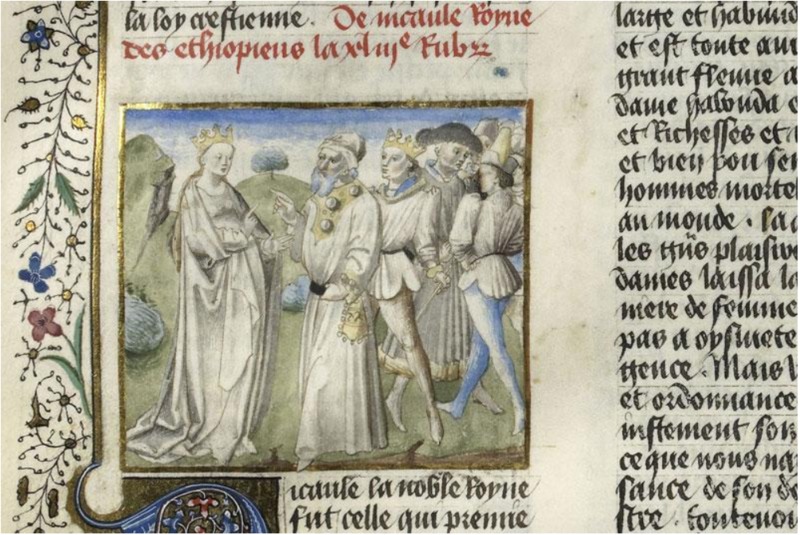 la loy crestienne. De nicaule Royne
des ethiopiens la xliije Rubr
icaule la noble Royne
fut celle qui premie
large et habund
et est toute au
grant fleuve a
dame habonda e
et Richesses et a
et bien pou se
hommes mortel
au monde. la
les gns plaisiv
dames laissa la
mere de femme
pas a oysivete
gence. Mais
et ordonnance
instement son
ce que nous na
sance de son de
stre. toutevoi